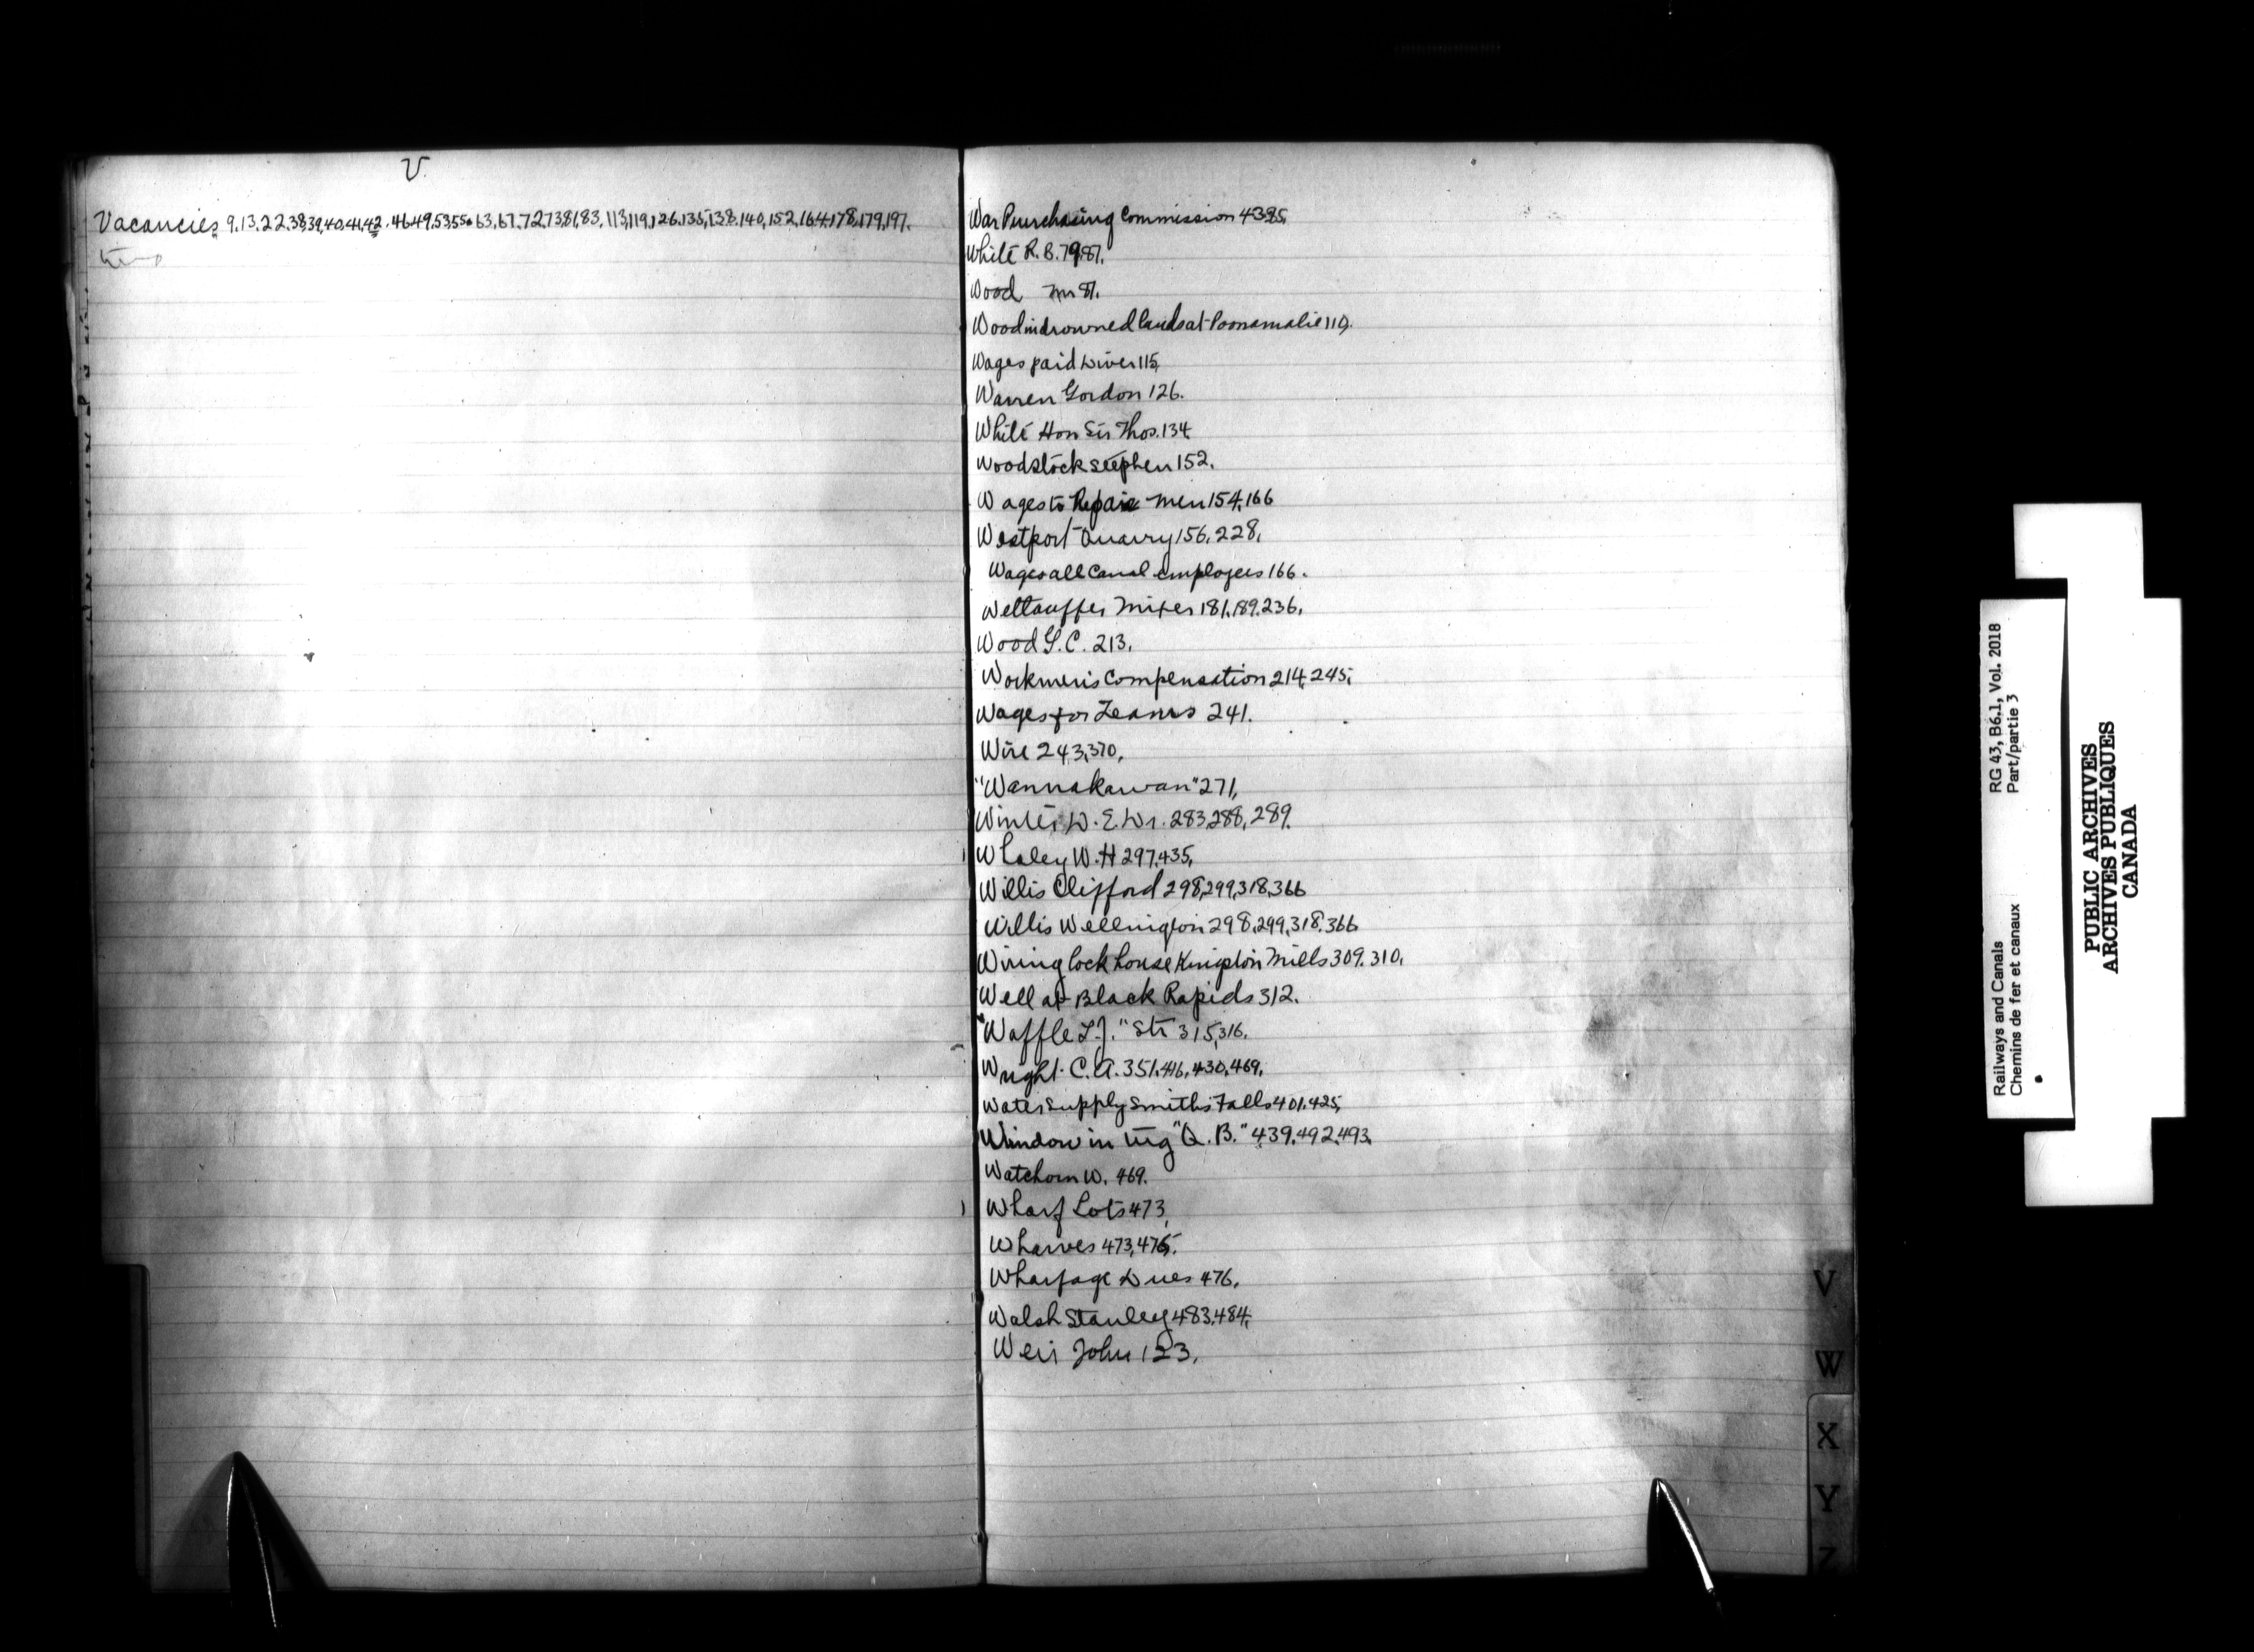 V.
Vacancies 9.13.22.38,39,40,41,42.46.49.53,55.63,67.72,73,81,83,113,119,126.135,138.140,152,164,178,179,197.
War Purchasing Commission 4395,
White R. B. 79,87,
Wood Mr 87.
Wood in drowned lands at Poonamalie 110,
Wages paid Diver 115,
Warren Gordon 126.
White Hon Sir Thos. 134,
Woodstock Stephen 152.
Wages to Repair men 154,166
Westport Quarry 156, 228,
Wages all Canal employees 166.
Wettlauffer Mixer 181,189.236,
Wood G. C. 213,
Workmen's Compensation 214,245,
Wages for Teams 241.
Wire 243,370,
"Wannakawan" 271,
Winter W. E. Dr. 283,288, 289.
Whaley W. H 297,435,
Willis Clifford 298,299,318,366
Willis Wellington 298,299,318,366
Wiring lock house Kingston Mills 309. 310,
Well at Black Rapids 312.
"Waffle L.J." Str 315,316.
Wright C. A. 351,416,430,469,
Water supply Smiths Falls 401,425,
Window in tug "Q. B." 439,492,493,
Watchorn W. 469.
Wharf Lots 473,
Wharves 473,475.
Wharfage Dues 476,
Walsh Stanley 483,484,
Weir John 123,
V
W
X
Y
Z
Railways and Canals RG 43, B6.1, Vol. 2018
Chemins de fer et canaux Part/partie 3
PUBLIC ARCHIVES
ARCHIVES PUBLIQUES
CANADA